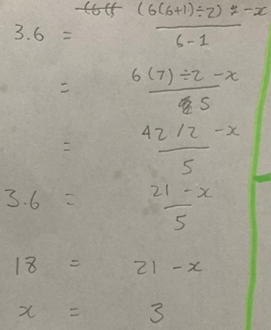 3.6 = (6(6+1)÷2) - x / 6-1
= 6(7)÷2 - x / 5
= 42/2 - x / 5
3.6 = 21 - x / 5
18 = 21 - x
x = 3